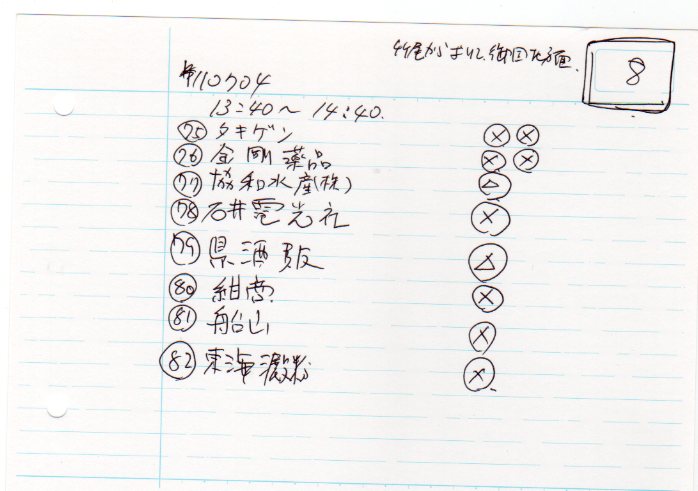 8
110704
13:40~14:40.
75 タキゲン ⊗ ⊗
76 金剛薬品 ⊗ ⊗
77 協和水産(株) △
78 石井電光社 ⊗
79 県酒販 △
80 紺営 ⊗
81 船山 ⊗
82 東海澱粉 ⊗